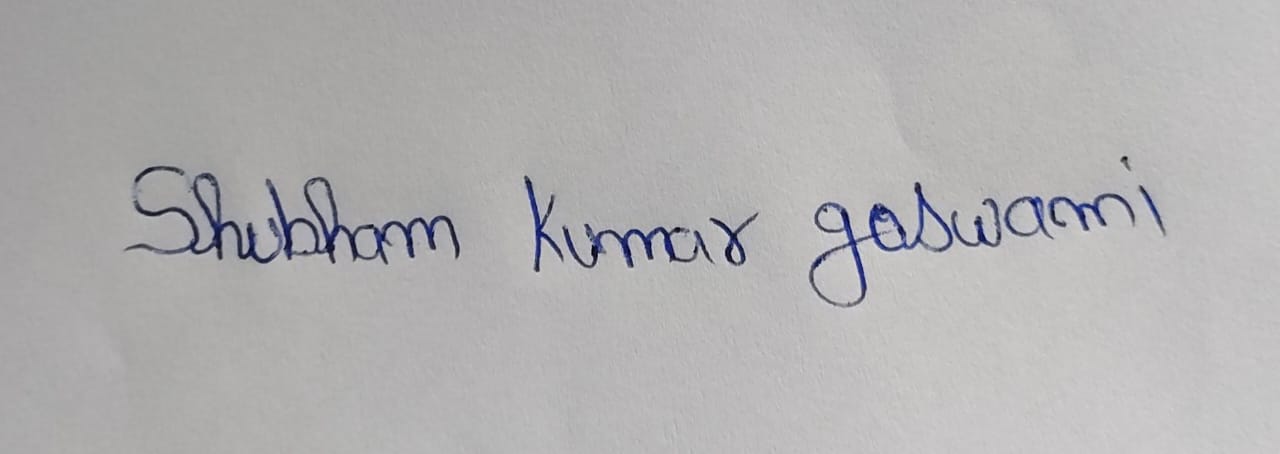 Shubham Kumar goswami